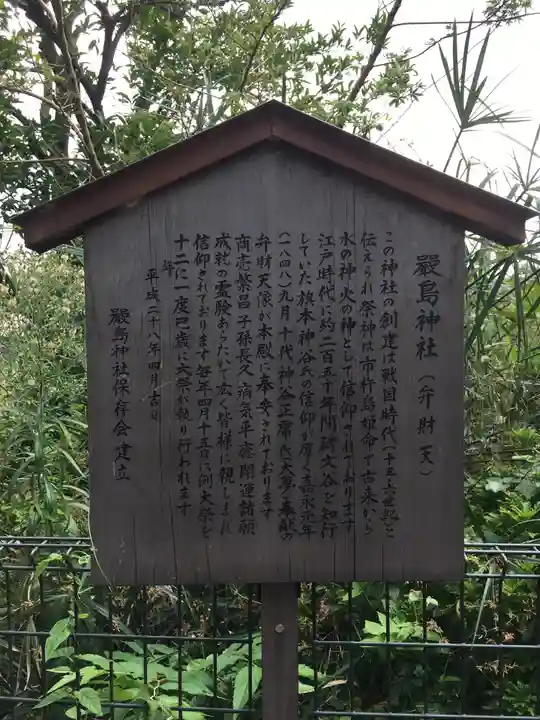 嚴島神社（弁財天）
この神社の創建は戦国時代（十五・六世紀）と
伝えられ祭神は市杵島姫命で古来から
水の神・火の神として信仰されております
江戸時代に約二百五十年間碑文谷を知行
していた旗本神谷氏の信仰が厚く嘉永元年
（一八四八）九月十代神谷正 氏 奉献の
弁財天像が本殿に奉安されております
商売繁昌子孫長久病気平癒開運諸願
成就の霊験あらたかで広く皆様に親しまれ
信仰されております毎年四月十五日に例大祭を
十二年に一度巳歳に大祭が執り行われます
平成二十 年四月吉日
嚴島神社保存会建立